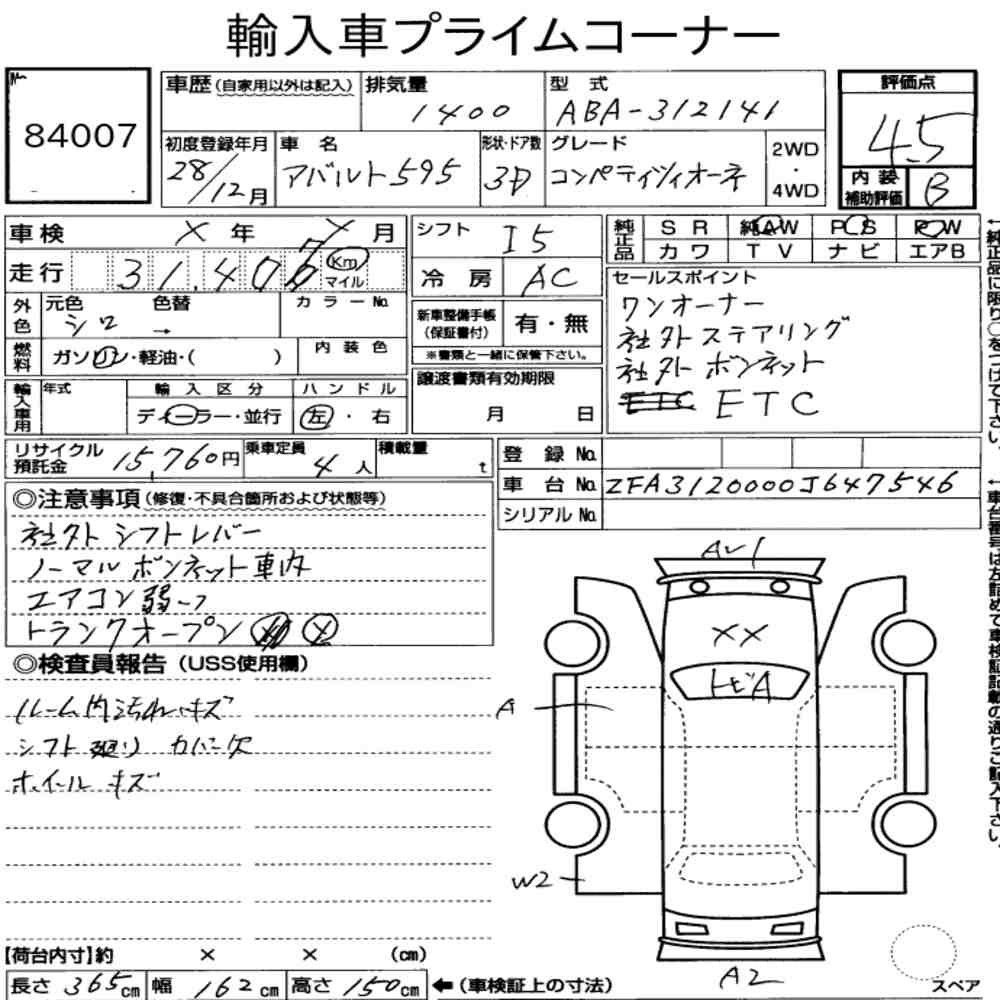 輸入車プライムコーナー
84007
車歴(自家用以外は記入) 排気量 1400 型式 ABA-312141
評価点 4.5
初度登録年月 28/12月 車名 アバルト595 形状・ドア数 3D グレード コンペティツィオーネ 2WD・4WD
内装補助評価 B
車検 X年 X月
走行 31,40 Km マイル
シフト I5
冷房 AC
純正品 SR 純AW PS PW
カワ TV ナビ エアB
外色 元色 シロ 色替 → カラーNo.
燃料 ガソリン・軽油・( ) 内装色
新車整備手帳(保証書付) 有・無
※書類と一緒に保管下さい。
セールスポイント
ワンオーナー
社外ステアリング
社外ボンネット
ETC
輸入車用 年式 輸入区分 ディーラー・並行 ハンドル 左・右
譲渡書類有効期限
月 日
リサイクル預託金 15,760円 乗車定員 4人 積載量 t
登録No.
車台No. ZFA3120000J647546
シリアルNo.
◎注意事項(修復・不具合箇所および状態等)
社外シフトレバー
ノーマルボンネット車内
エアコン弱〜フ
トランクオープン X
◎検査員報告(USS使用欄)
ルーム内汚れ・キズ
シフト廻りカバー欠
ホイールキズ
Aw1
XX
トビA
A
W2
A2
スペア
【荷台内寸】約 × × (cm)
長さ 365cm 幅 162cm 高さ 150cm ←(車検証上の寸法)
←純正品に限り○をつけて下さい。
←車台番号は左詰めで車検証記載の通りご記入下さい。